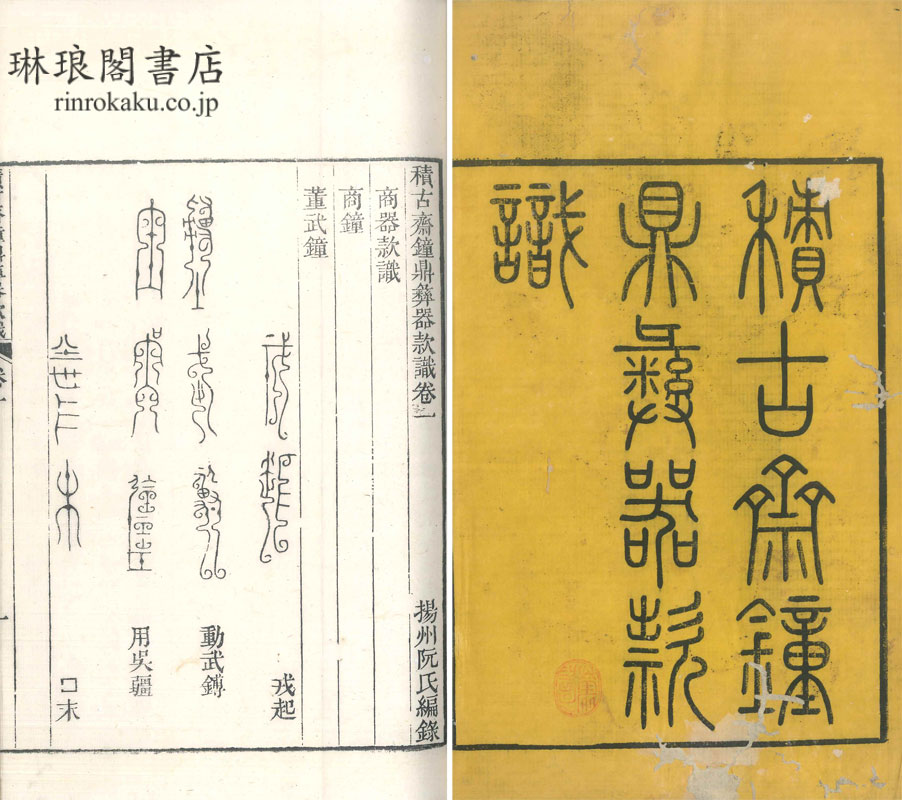 琳琅閣書店
rinrokaku.co.jp
積古齋鐘
鼎彝器款
識
積古齋鐘鼎彝器款識卷一
揚州阮氏編錄
商器款識
商鐘
董武鐘
戎起
動武鎛
用吳疆
口末